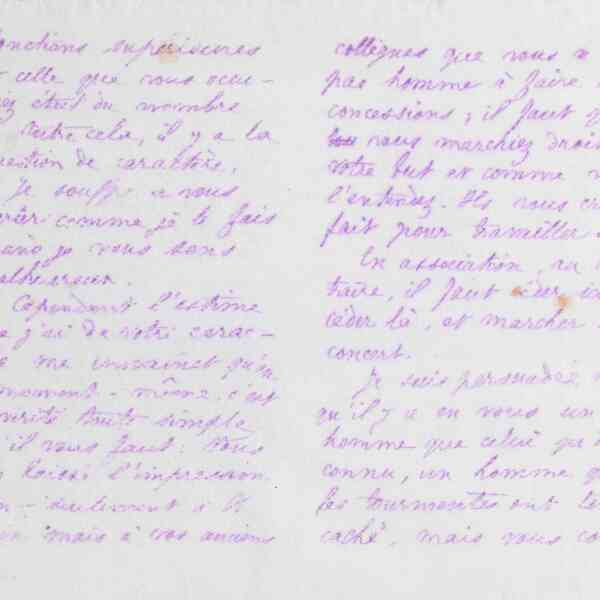 fonctions supérieures
celle que vous occu-
iez était du nombre
Outre cela, il y a la
question de caractère,
je souffre à vous
comme je le fais
je vous sens
malheureux.
Cependant l'estime
j'ai de votre carac-
me convainct qu'en
moment-même, c'est
vérité toute simple
il vous faut. Vous
laissé l'impression
seulement à
mais à vos anciens
collègues que vous
pas homme à faire
concessions; il faut
vous marchiez droit
votre but et comme
l'entendez. Ils vous
fait pour travailler
En association, au
traire, il faut céder
céder là, et marcher
concert.
Je suis persuadée
qu'il y a en vous un
homme que celui qu'
connu, un homme
les tourmentes ont
caché, mais vous